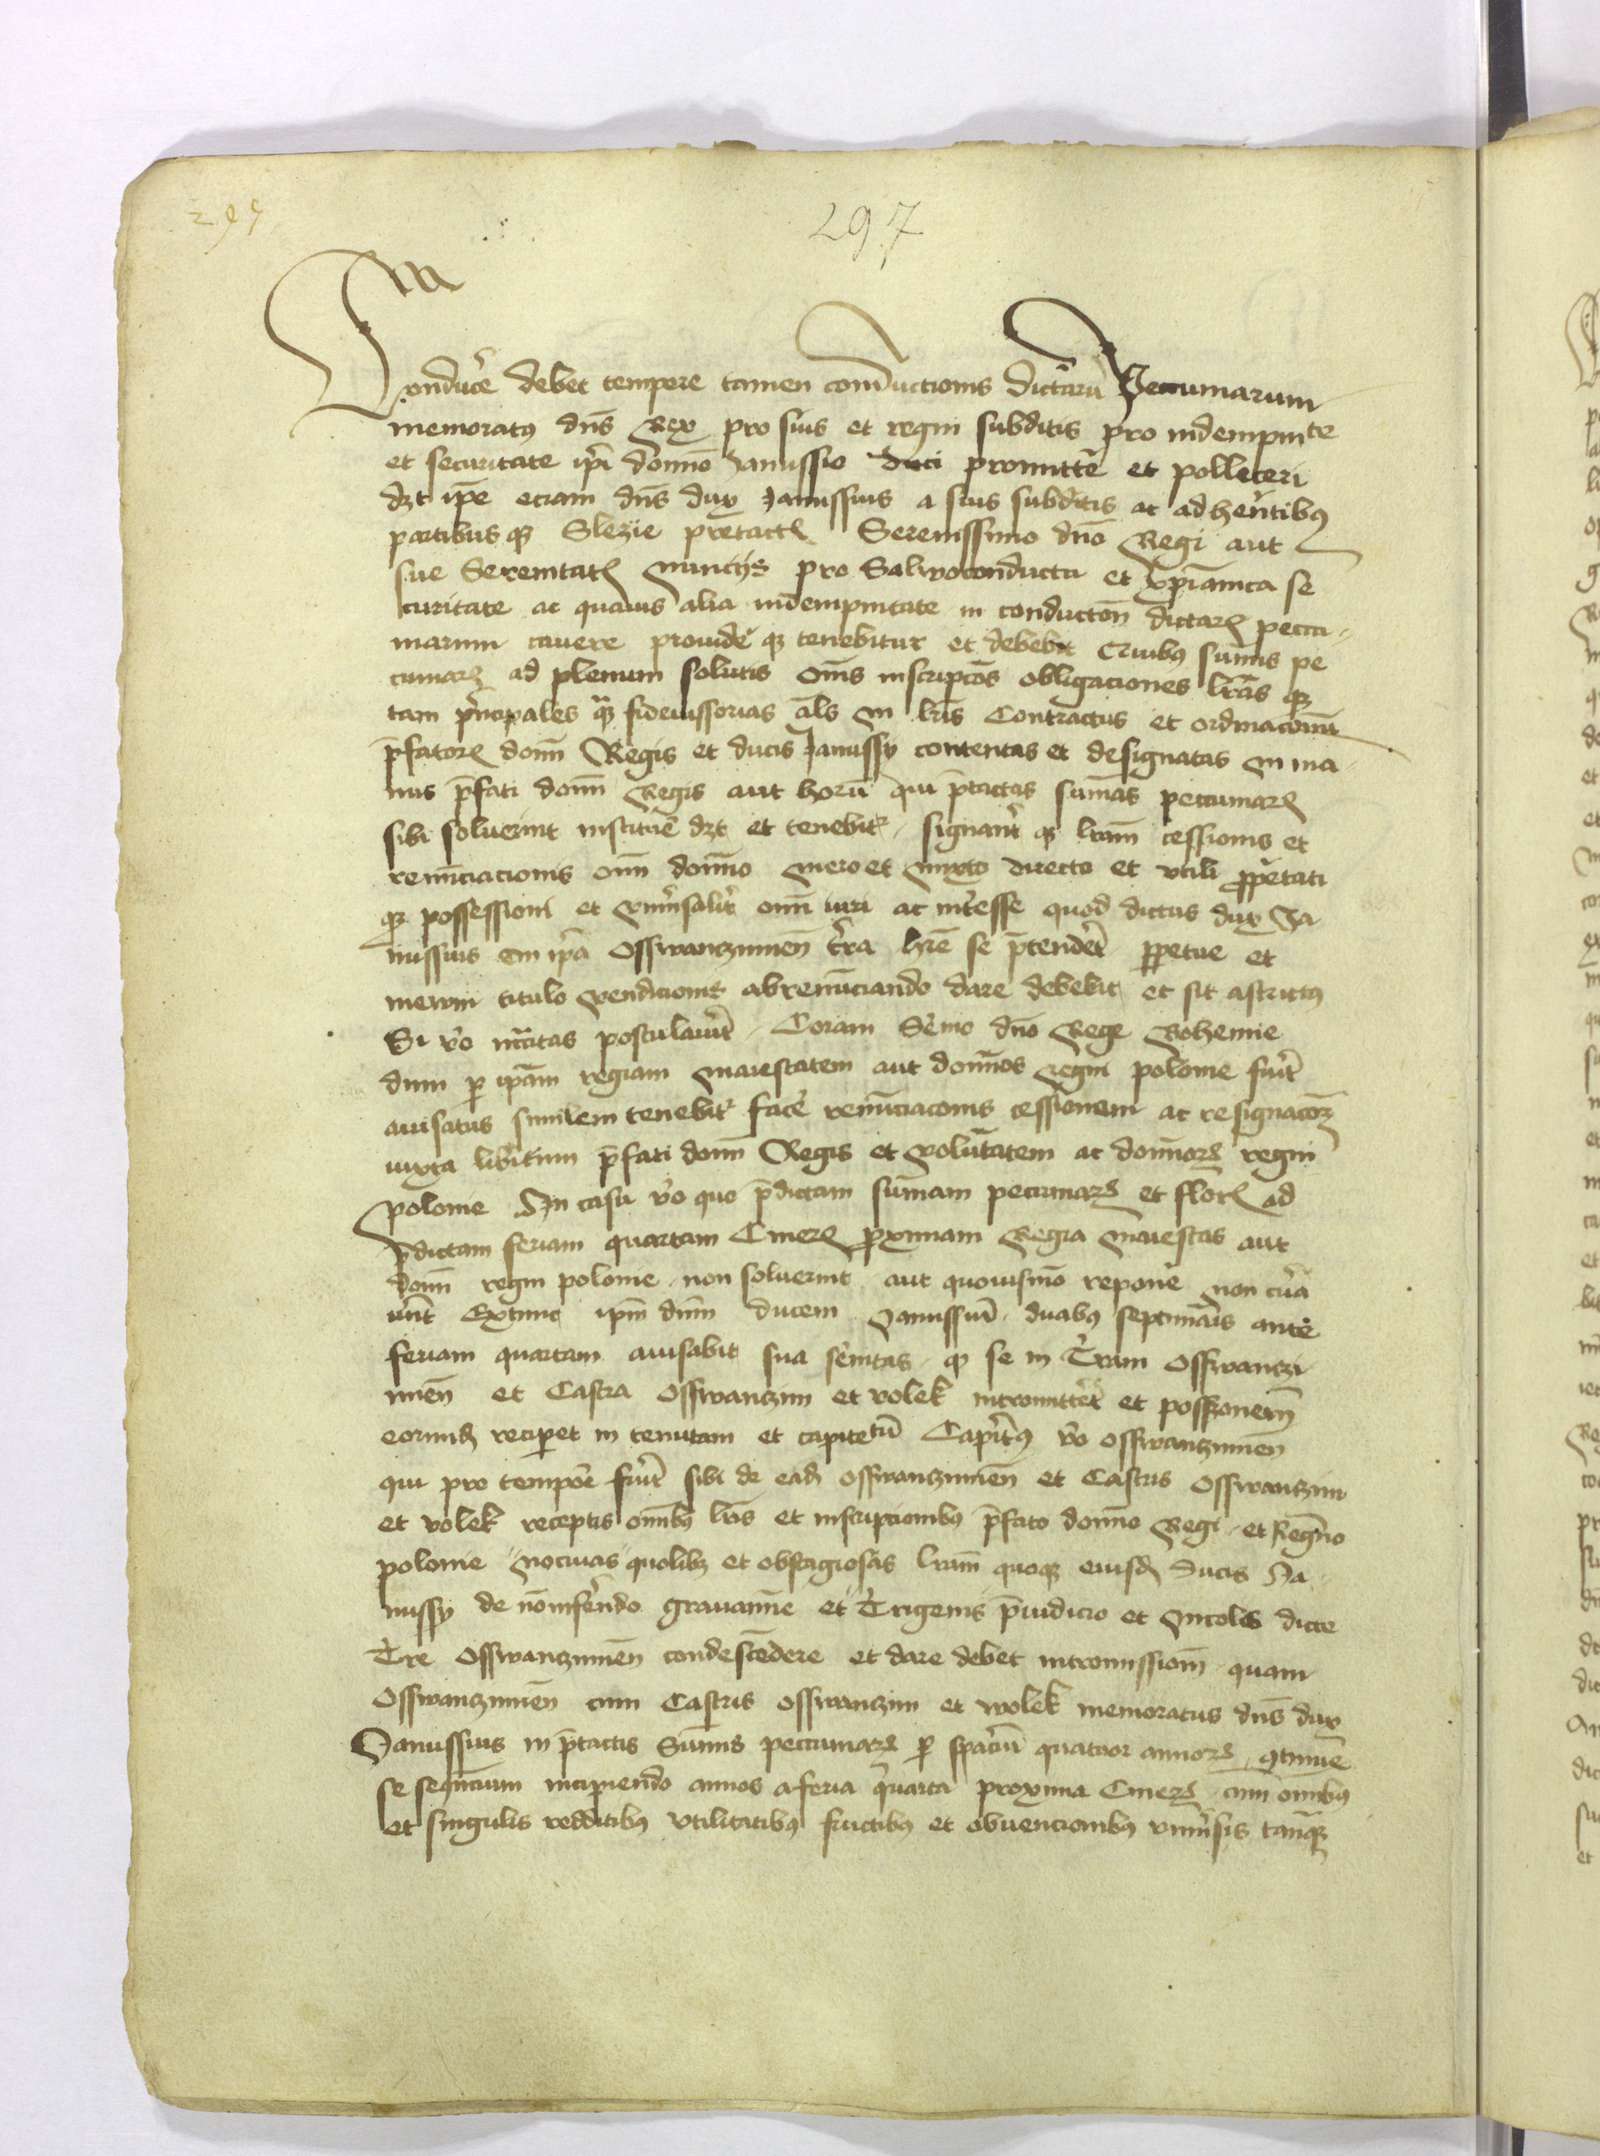 295
297
Conducere debet tempore tamen conductionis dictarum Peccuniarum
memoratus dns Rex pro suis et regni subditis pro indempnite
et securitate ipi domno Janussio duci promitte et polleceri
dzt ipe eciam dns dux Janussius a suis subditis ac adherentibus
partibus qz Slezie pretactis Serenissimo dno Regi aut
sue Serenitatis Nuncijs pro Salwoconductu et xpianica se
curitate ac quavis alia indempnitate in conducton dictarum peccu
niarum cavere providere qz tenebitur et debebit Quibus summis pe
cuniarum ad plenum solutis oms inscriptoes obligaciones lras qz
tam principales quam fideiussorias als in lris Contractus et ordinacionum
pfatorum domni Regis et ducis Janussy contentas et designatas in ma
nus pfati domni Regis aut horum qui ptactas summas peccuniarum
sibi soluerint instituere dzt et tenebitur signanter qz lram cessionis et
renunciacionis omni domnio mero et mixto directo et vtili proprietati
qz possessioni et vniversaliter omni iuri ac interesse quod dictus dux Ja
nussius in ipa Osswanczimen terra hre se ptenderet perpetue et
mewm titulo vendicionis abrenunciando dare debebit et sit astrictus
Si vo necitas postulaverit Coram Seremo dno Rege Bohemie
dum per ipam regiam Maiestatem aut domnos regni polonie fuerit
avisatus similem tenebitur facere renunciaconis cessionem ac resignacom
iuxta libitum pfati domni Regis et voluntatem ac domnorum regni
polonie In casu vo quo pdictam summam pecuniarum et florenorum ad
pdictam feriam quartam Cinerum proximam Regia Maiestas aut
domni regni polonie non soluerint aut quovismo reponere non cura
uerint Extunc ipm dnm ducem Janussium duabus septimanis ante
feriam quartam avisabit sua seremitas qz se in Terram Osswanczi
men et Castra Osswanczim et volek intromitteret et possessionem
eorundem reciperet in tenutam et capitetum Capiteus vo osswanczimen
qui pro tempore fuerit sibi de eadem osswanczimen et Castris Osswanczim
et volek receptis omnibus lris et inscripcionibus pfato domno Regi et Regno
polonie nocivas quolibet et obstagiosas lram quoqz eiusdem Ducis Ja
nussy de non inferendo gravamine et Terrigenis preiudicio et incolis dicte
Tre Osswanczimen condescendere et dare debet intromissionem quam
Osswanczimen cum Castris osswanczim et wolek memoratus dns dux
Janussius in ptactis summis peccuniarum per spacium quatuor annorum continue
se sequencium incipiendo annos a feria quarta proxima Cinerum cum omnibus
et singulis redditibus vtilitatibus fructibus et obvencionibus vniversis tamquam